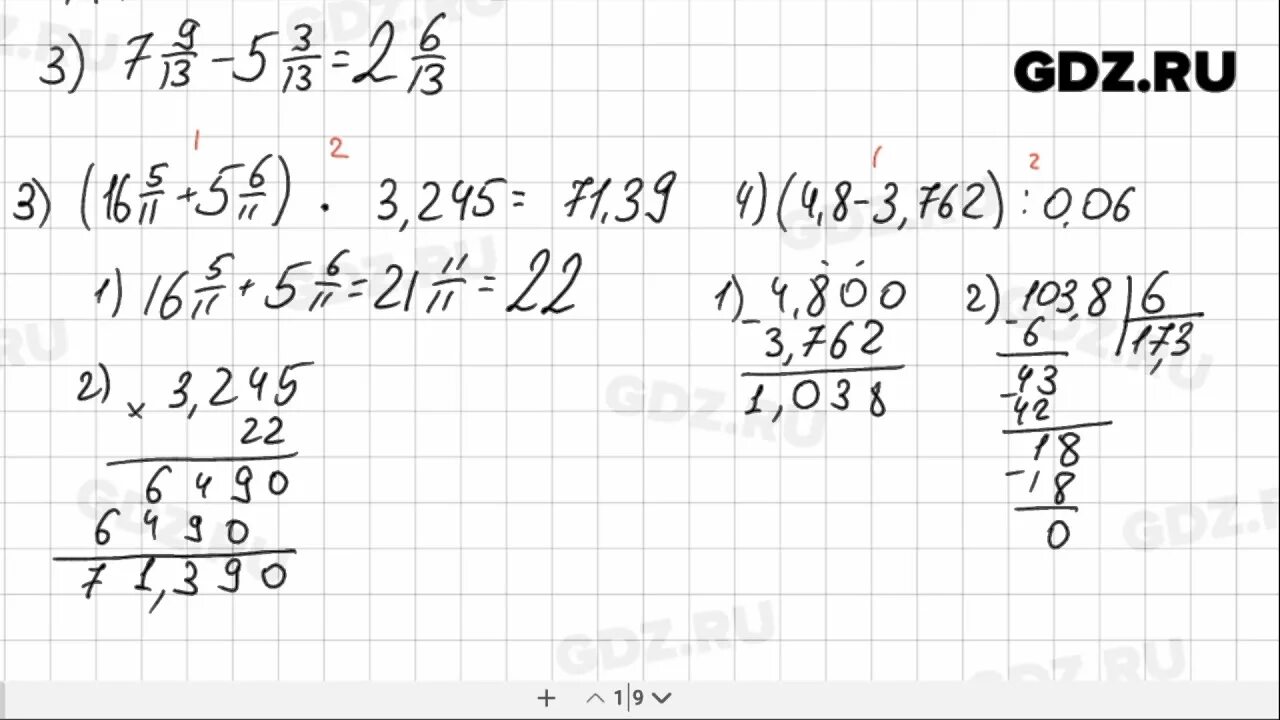 3) 7 9/13 - 5 3/13 = 2 6/13
GDZ.RU
1 2
3) (16 5/11 + 5 6/11) · 3,245 = 71,39
1) 16 5/11 + 5 6/11 = 21 11/11 = 22
2) × 3,245
22
6 4 9 0
6 4 9 0
7 1,3 9 0
1 2
4) (4,8 - 3,762) : 0,06
1) - 4,800
3,762
1,038
2) - 103,8 | 6
6 17,3
- 43
42
18
- 18
0
+ 1|9